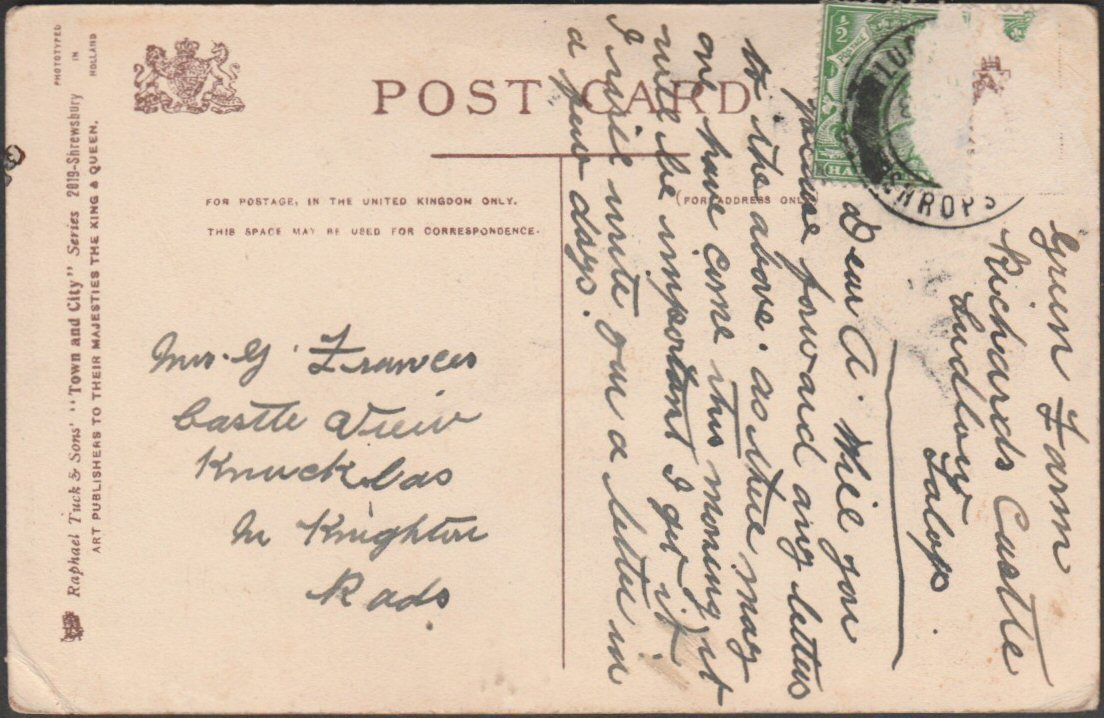 PHOTOTYPED
IN
HOLLAND
Raphael Tuck & Sons' "Town and City" Series 2019-Shrewsbury
ART PUBLISHERS TO THEIR MAJESTIES THE KING & QUEEN.
POST CARD
FOR POSTAGE, IN THE UNITED KINGDOM ONLY.
THIS SPACE MAY BE USED FOR CORRESPONDENCE.
(FOR ADDRESS ONL
1/2
POSTAGE
(HA
LUD
SHROPS
Mrs. G. Frances
Castle View
Knucklas
Nr Knighton
Rads.
Green Farm
Richards Castle
Ludlow
Salop.
Dear A. Will you
please forward any letters
to the above. as there may
one have come this morning it
will be important I get it
I will write you a letter in
a few days.